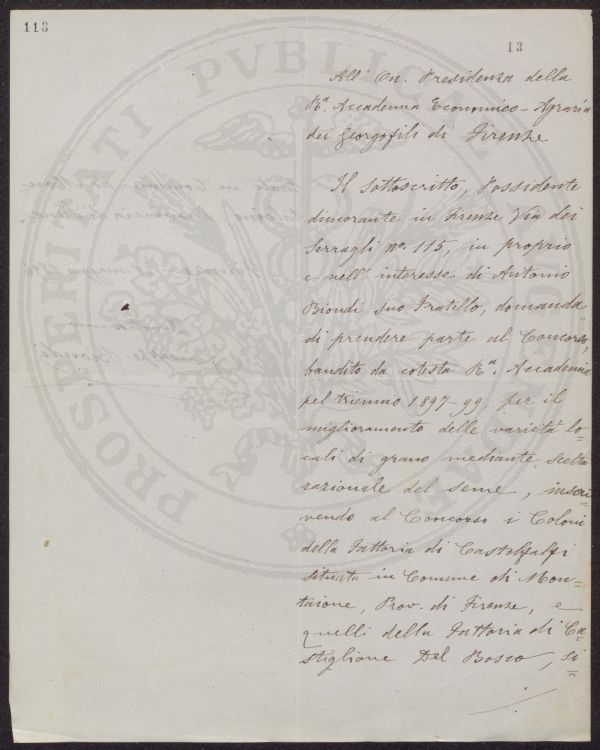 113
13
All' On. Presidenza della
Rª. Accademia Economico-Agraria
dei Georgofili di Firenze
Il sottoscritto, Possidente
dimorante in Firenze Via dei
Serragli nº. 115, in proprio
e nell' interesse di Antonio
Biondi suo Fratello, domanda
di prendere parte al Concorso,
bandito da cotesta Rª. Accademia
pel triennio 1897-99, per il
miglioramento delle varietà lo=
cali di grano mediante scelta
razionale del seme, inscri=
vendo al Concorso i Coloni
della Fattoria di Castelfalfi
situata in Comune di Mon=
taione, Prov. di Firenze, e
quelli della Fattoria di Ca=
stiglione Del Bosco, si=
PROSPERITATI PUBLICAE